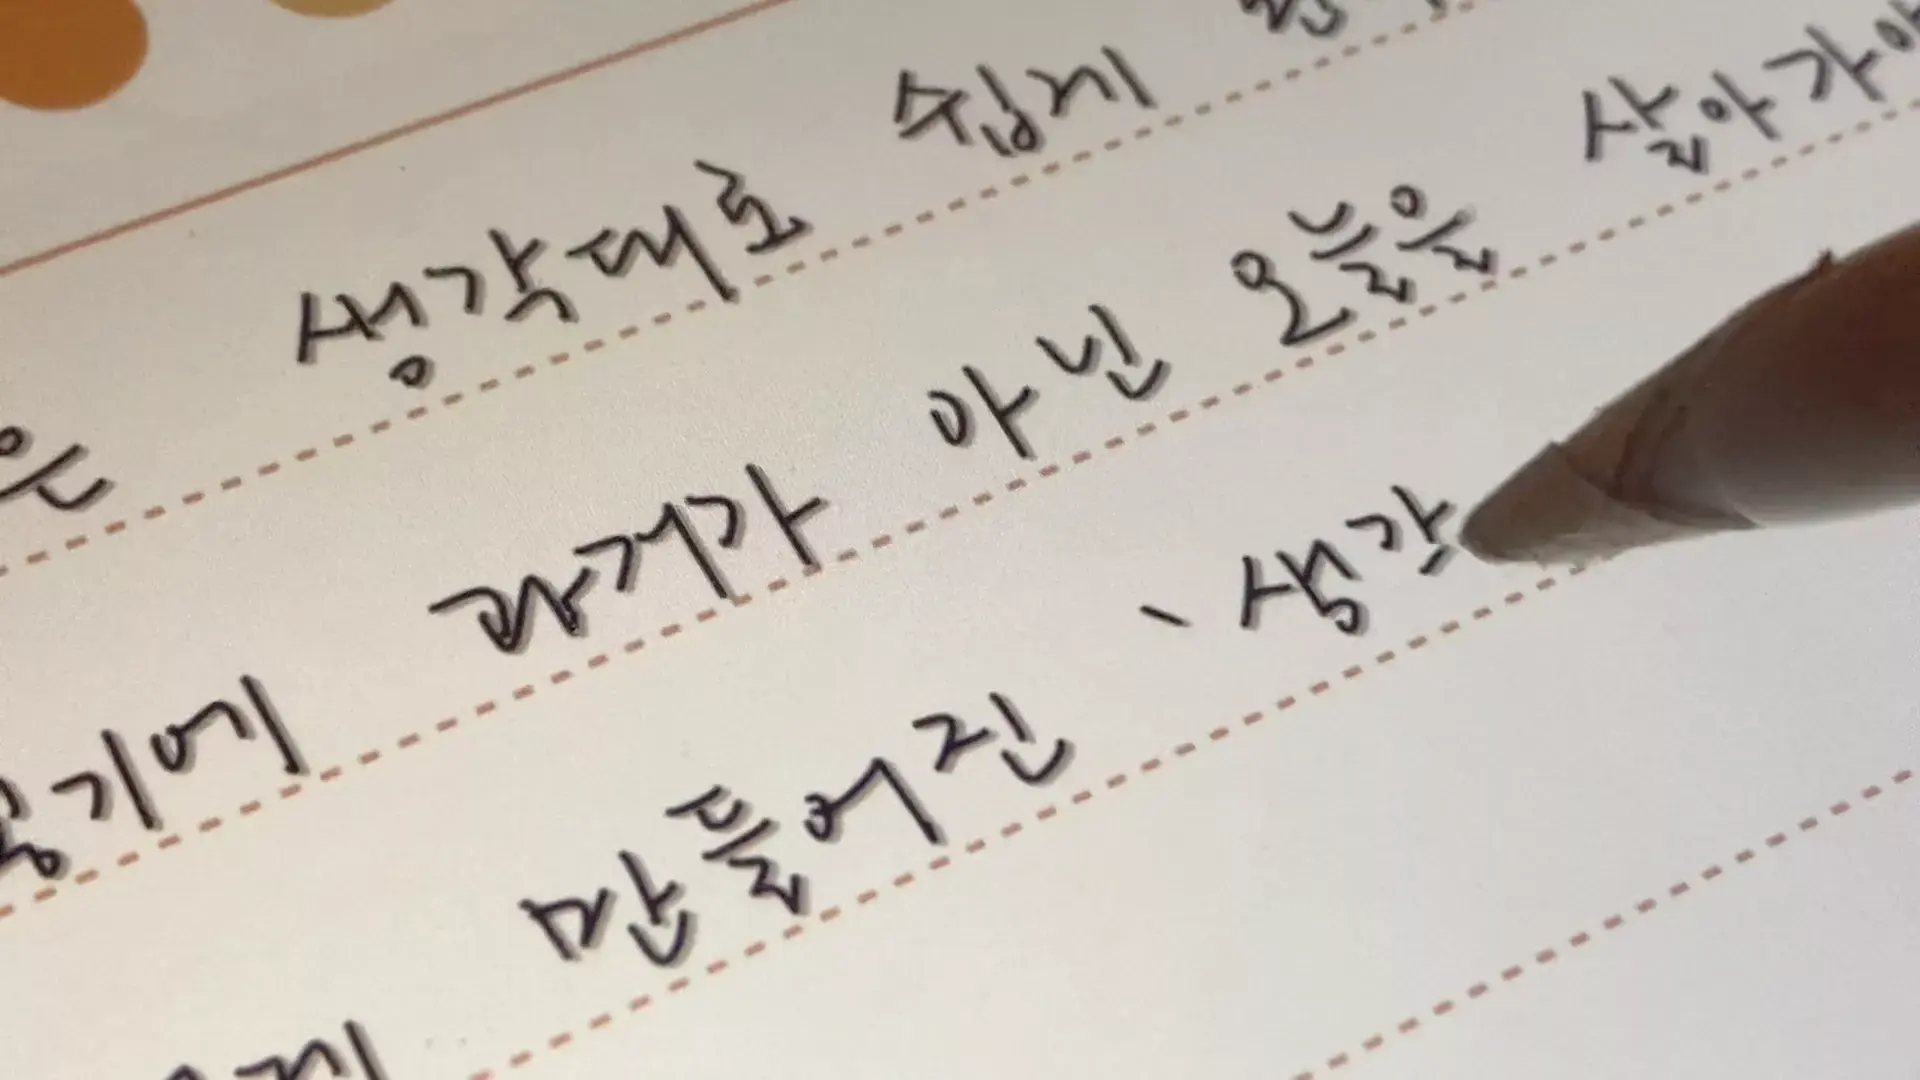 은 생각대로 쉽게
기에 과거가 아닌 오늘을 살아가야
만들어진 、생각